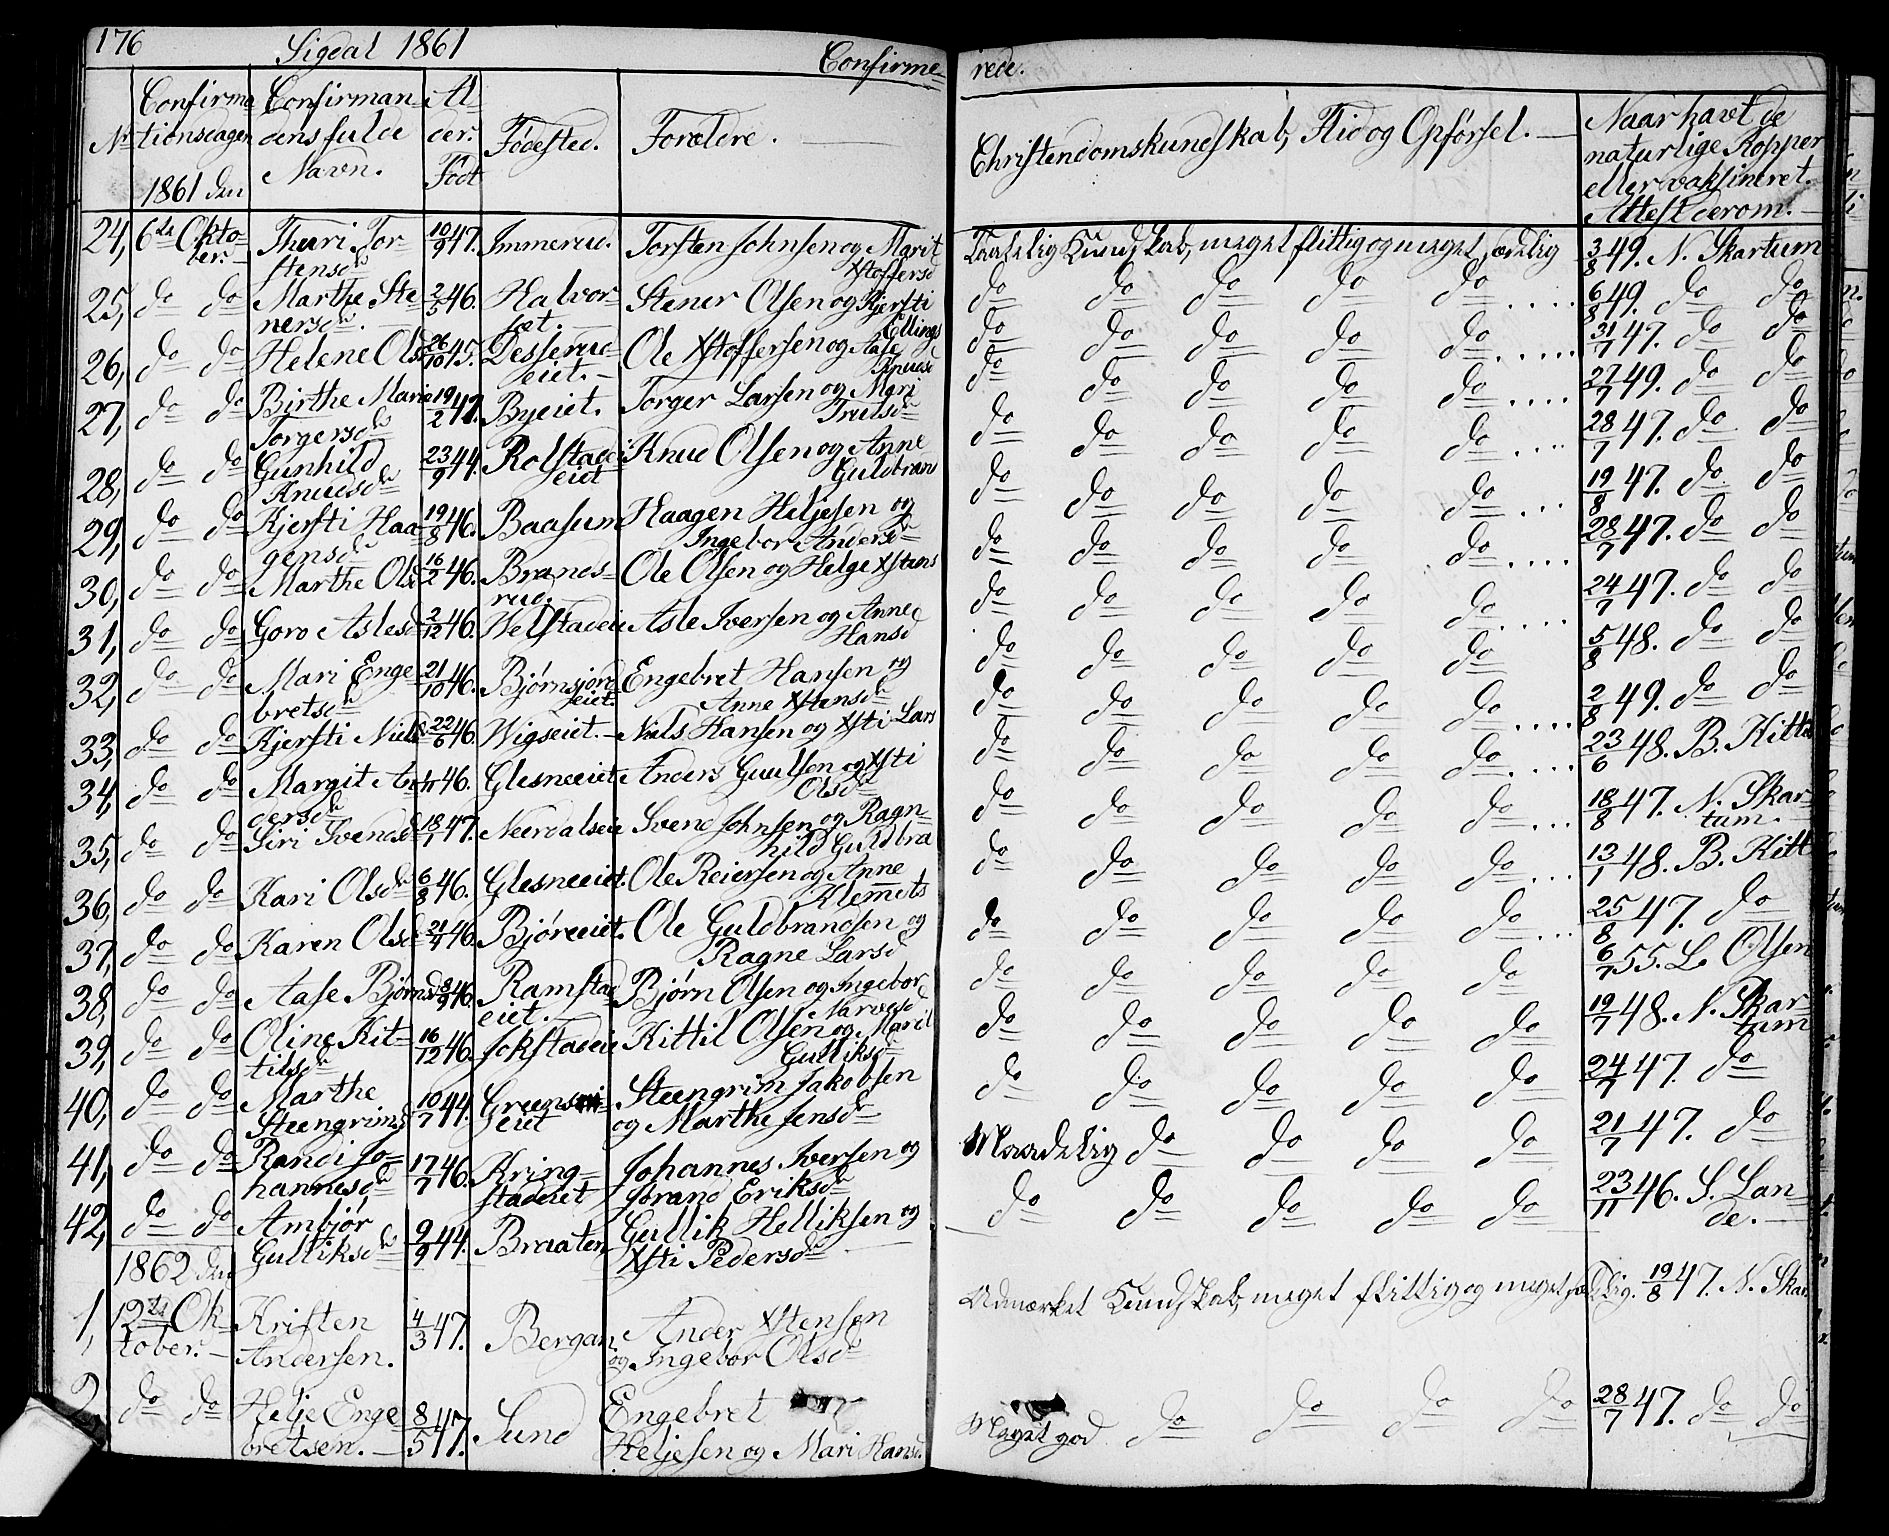 176 Sigdal 1861 Confirme- rede.
Nr Confirmationsdagen 1861 den Confirmandens fulde Navn. Alder. Født Fødested. Forældre. Christendomskundskab, Flid og Opførsel. Naar havt de naturlige Kopper eller vaksineret. Attest derom.
24, 6te Oktober. Thuri Torstensd 10/9 47. Immerud. Torsten Johnsen og Marit Xstoffersd Kundskab, meget flittig og meget sædelig 3/8 49. N. Skartum
25, do do Marthe Stenersd. 2/5 46. Halvorset. Stener Olsen og Kjersti Ellings do do do do do 6/8 49. do do
26, do do Helene Ols 26/10 45. Desserudeiet. Ole Xstoffersen og Aase Knudsd do do do do do 31/7 47. do do
27, do do Birthe Marie Torgersd 19/2 47. Byeiet. Torger Larsen og Mari Trulsd do do do do do 27/7 49. do do
28, do do Gunhild Knudsd 23/9 44. Rolstadeiet Knud Olsen og Anne Guldbrand do do do do do 28/7 47. do do
29, do do Kjersti Haagensd 19/8 46. Baasum Haagen Heljesen og Ingebor Andersd do do do do do 19/8 47. do do
30, do do Marthe Ols 16/2 46. Brandsrud. Ole Olsen og Helge Xstens do do do do do 28/7 47. do do
31, do do Goro Aslesd 2/12 46. Welstadeie Asle Iversen og Anne Hansd do do do do do 24/7 47. do do
32, do do Mari Engebretsd 21/10 46. Bjørnsjordeiet Engebret Hansen og Anne Xstensd do do do do do 5/8 48. do do
33, do do Kjersti Niels 22/6 46. Wigseiet. Niels Hansen og Xsti Lars do do do do do 2/8 49. do do
34, do do Margit Andersd 46. Glesneeiet Anders Guulsen og Xsti Olsd do do do do do 23/6 48. B. Kitt
35, do do Siri Svendsd 18/1 47. Neerdalseie Svend Johnsen og Ragnhild Guldbra do do do do do 18/8 47. N. Skartum.
36, do do Kari Olsd 6/8 46. Glesneeiet. Ole Reiersen og Anne Klemets do do do do do 13/1 48. B. Kitt
37, do do Karen Ols 21/4 46. Bjøreeiet. Ole Guldbrandsen og Ragne Larsd do do do do do 25/8 47. do
38, do do Aase Bjørnsd 8/9 46. Ramstadeiet. Bjørn Olsen og Ingebor Narvesd do do do do do 6/7 55. L. Olsen
39, do do Oline Kittilsd 16/12 46. Jokstadeie Kittil Olsen og Marit Gulliksd do do do do do 19/7 48. N. Skartum
40, do do Marthe Steengrimsd 10/7 44. eiet Steengrim Jakobsen og Marthe Jensd do do do do do 24/7 47. do
41, do do Randi Johannesd 17/7 46. Kringstadeiet Johannes Iversen og Jorand Eriksd Maadelig do do do do 21/7 47. do
42, do do Ambjør Gulliksd 9/9 44. Braaten Gullik Helliksen og Xsti Pedersd do do do do do 23/11 46. S. Lande.
1862 den
1, 12te Oktober. Kristen Andersen. 4/3 47. Bergan Ander Xstensen og Ingebor Olsd Udmærket Kundskab, meget flittig og meget sædelig. 19/8 47. N. Skar
2, do do Helje Engebretsen. 8/5 47. Sund Engebret Heljesen og Mari Hansd. Meget god do do do do 28/7 47. do do